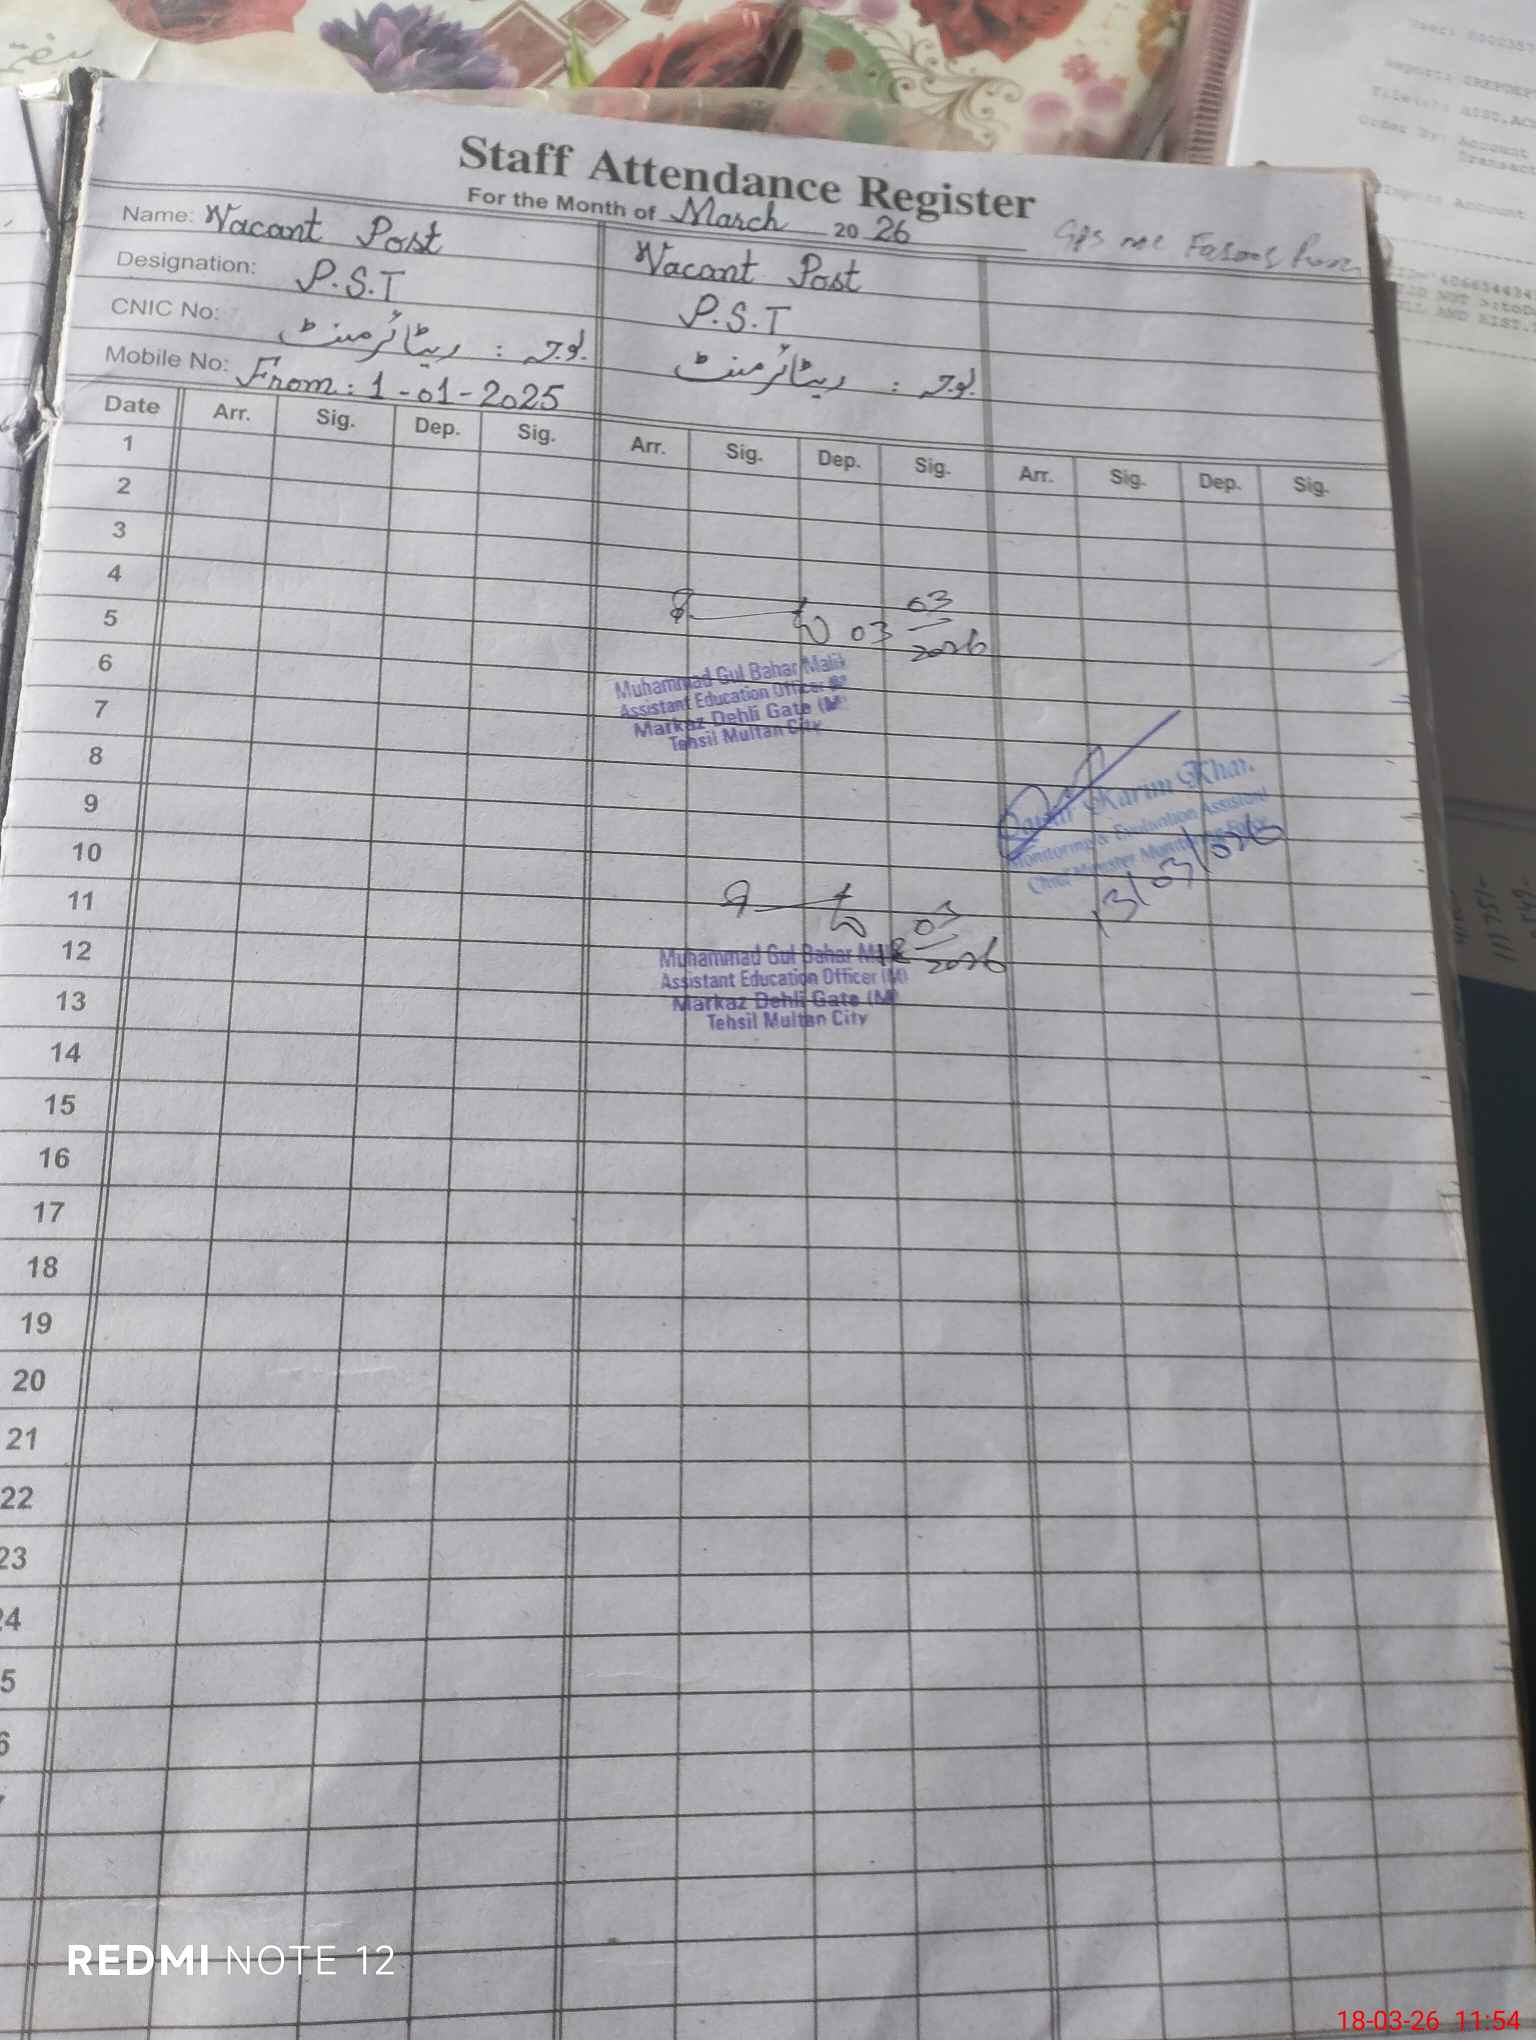 Staff Attendance Register
For the Month of March 2026
Name: Vacant Post
Vacant Post
Designation: P.S.T
P.S.T
CNIC No: بوجہ : ریٹائرمنٹ
بوجہ : ریٹائرمنٹ
Mobile No: From: 1-01-2025
Date Arr. Sig. Dep. Sig. Arr. Sig. Dep. Sig. Arr. Sig. Dep. Sig.
1
2
3
4
5
03 03 2026
6
Muhammad Gul Bahar Malik
Assistant Education Officer
Markaz Dehli Gate (M)
Tehsil Multan City
7
8
9
Karim Khan
Monitoring & Evaluation Assistant
Chief Minister Monitoring Force
13/03/026
10
11
18 03 2026
12
Muhammad Gul Bahar
Assistant Education Officer (M)
Markaz Dehli Gate (M)
Tehsil Multan City
13
14
15
16
17
18
19
20
21
22
23
24
5
6
REDMI NOTE 12
18-03-26 11:54